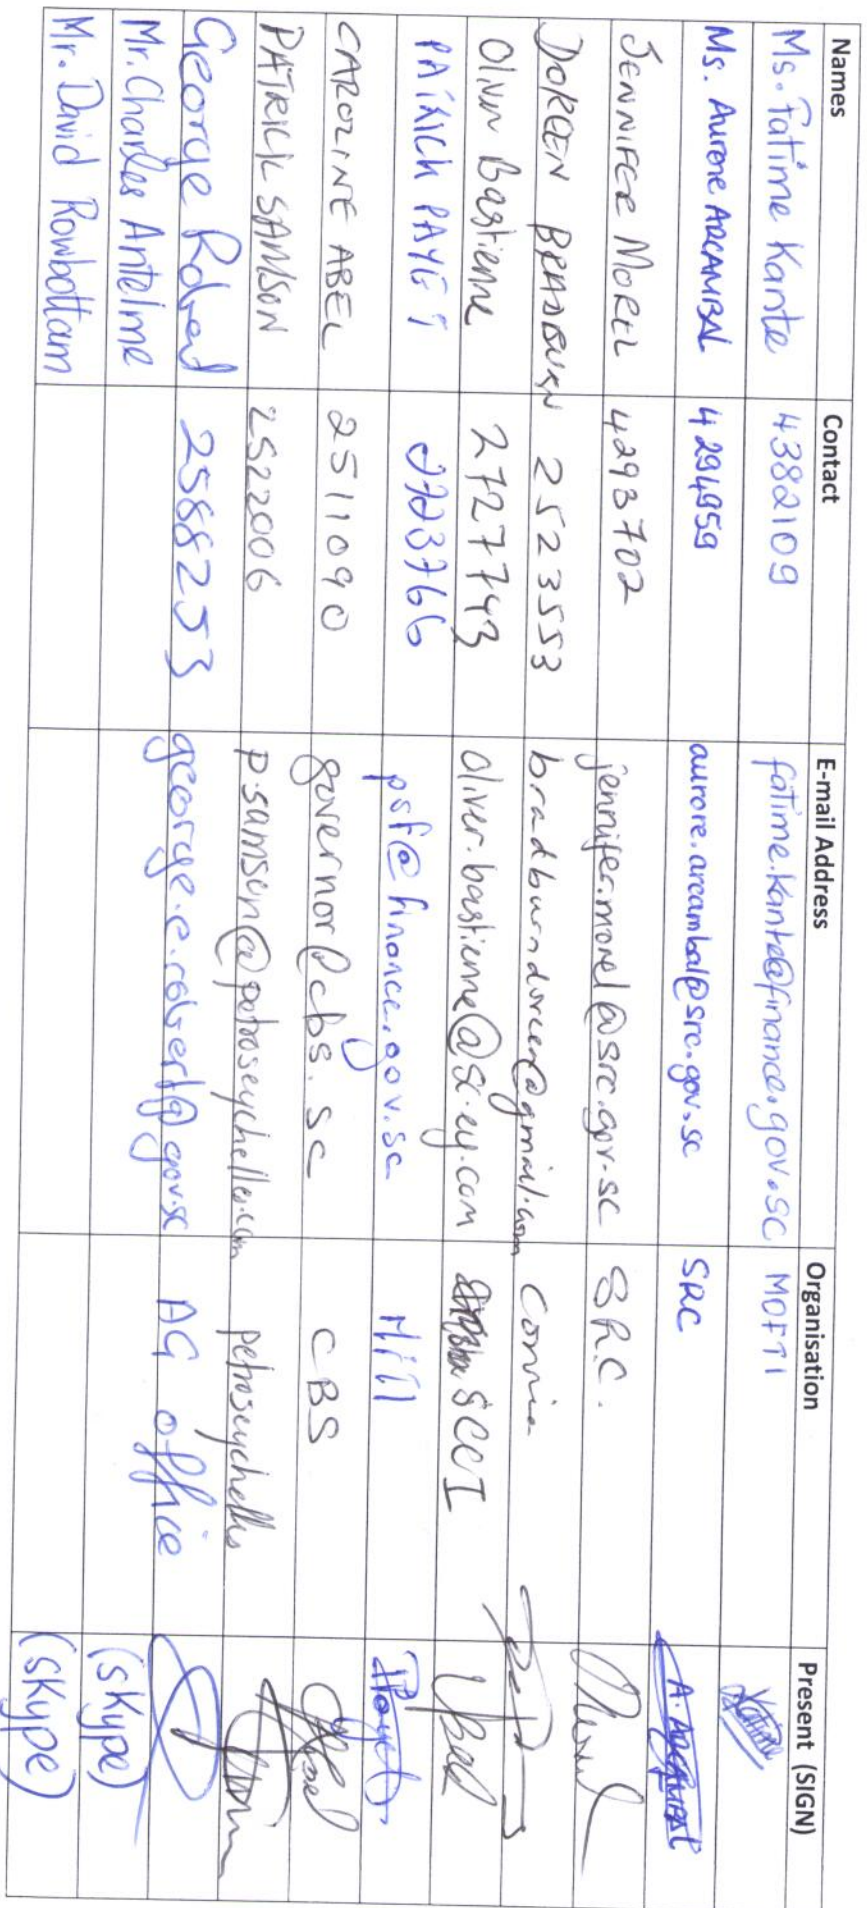 Names Contact E-mail Address Organisation Present (SIGN)
Ms. Fatime Kante 4382109 fatime.kante@finance.gov.sc MOFTI
Ms. Aurore ARCAMBAL 4294959 aurore.arcambal@src.gov.sc SRC A. ARCAMBAL
JENNIFER MOREL 4293702 jennifer.morel@src.gov.sc SRC.
DOREEN BRADBURN 2523553 bradburndoreen@gmail.com
Oliver Bastienne 2727743 oliver.bastienne@sc.ey.com SCCI
PATRICK PAYET 2723766 psf@finance.gov.sc Payet
CAROLINE ABEL 2511090 governor@cbs.sc CBS
PATRICK SAMSON 2522006 p.samson@petroseychelles.com petroseychelles
George Robert 2588253 george.e.robert@gov.sc AG office
Mr. Charles Antelme (SKype)
Mr. David Rowbottam (SKype)